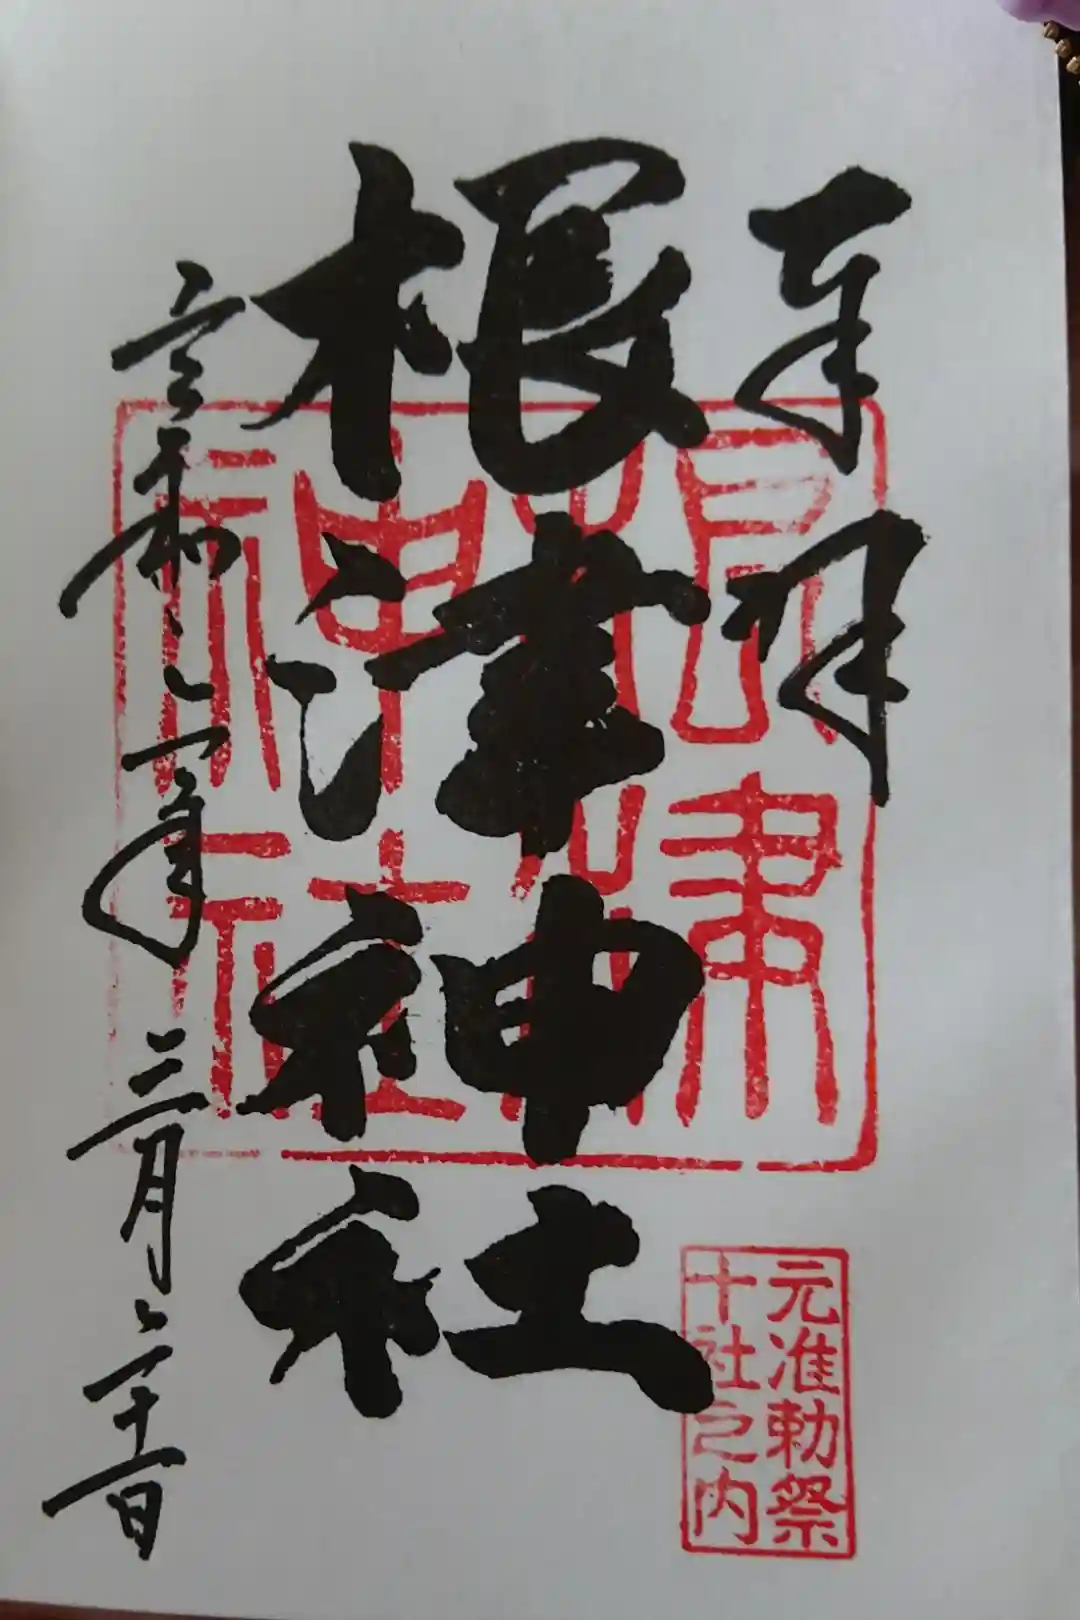 奉拝
根津神社
令和二年三月二十一日
根津
神社
元准勅祭
十社之内